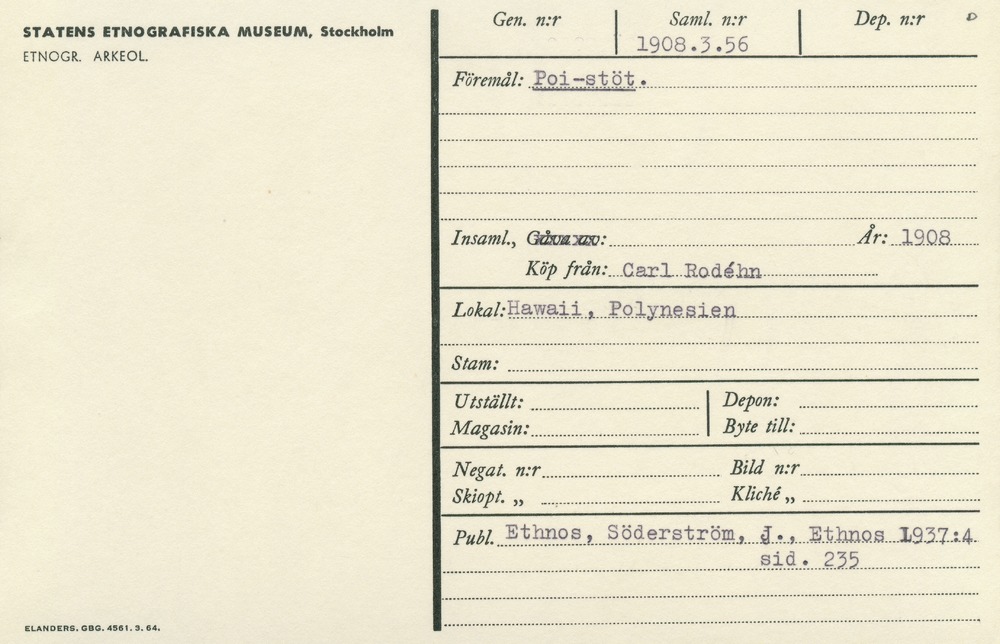 STATENS ETNOGRAFISKA MUSEUM, Stockholm
ETNOGR. ARKEOL.
Gen. n:r Saml. n:r Dep. n:r
1908.3.56
Föremål: Poi-stöt.
Insaml., Gåva av: År: 1908
Köp från: Carl Rodéhn
Lokal: Hawaii, Polynesien
Stam:
Utställt: Depon:
Magasin: Byte till:
Negat. n:r Bild n:r
Skiopt. „ Kliché „
Publ. Ethnos, Söderström, J., Ethnos 1937:4
sid. 235
ELANDERS. GBG. 4561. 3. 64.